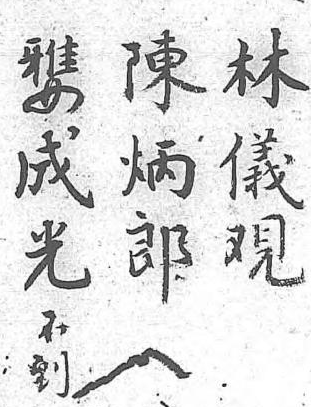 林儀观
陳炳郎
雙成光不到